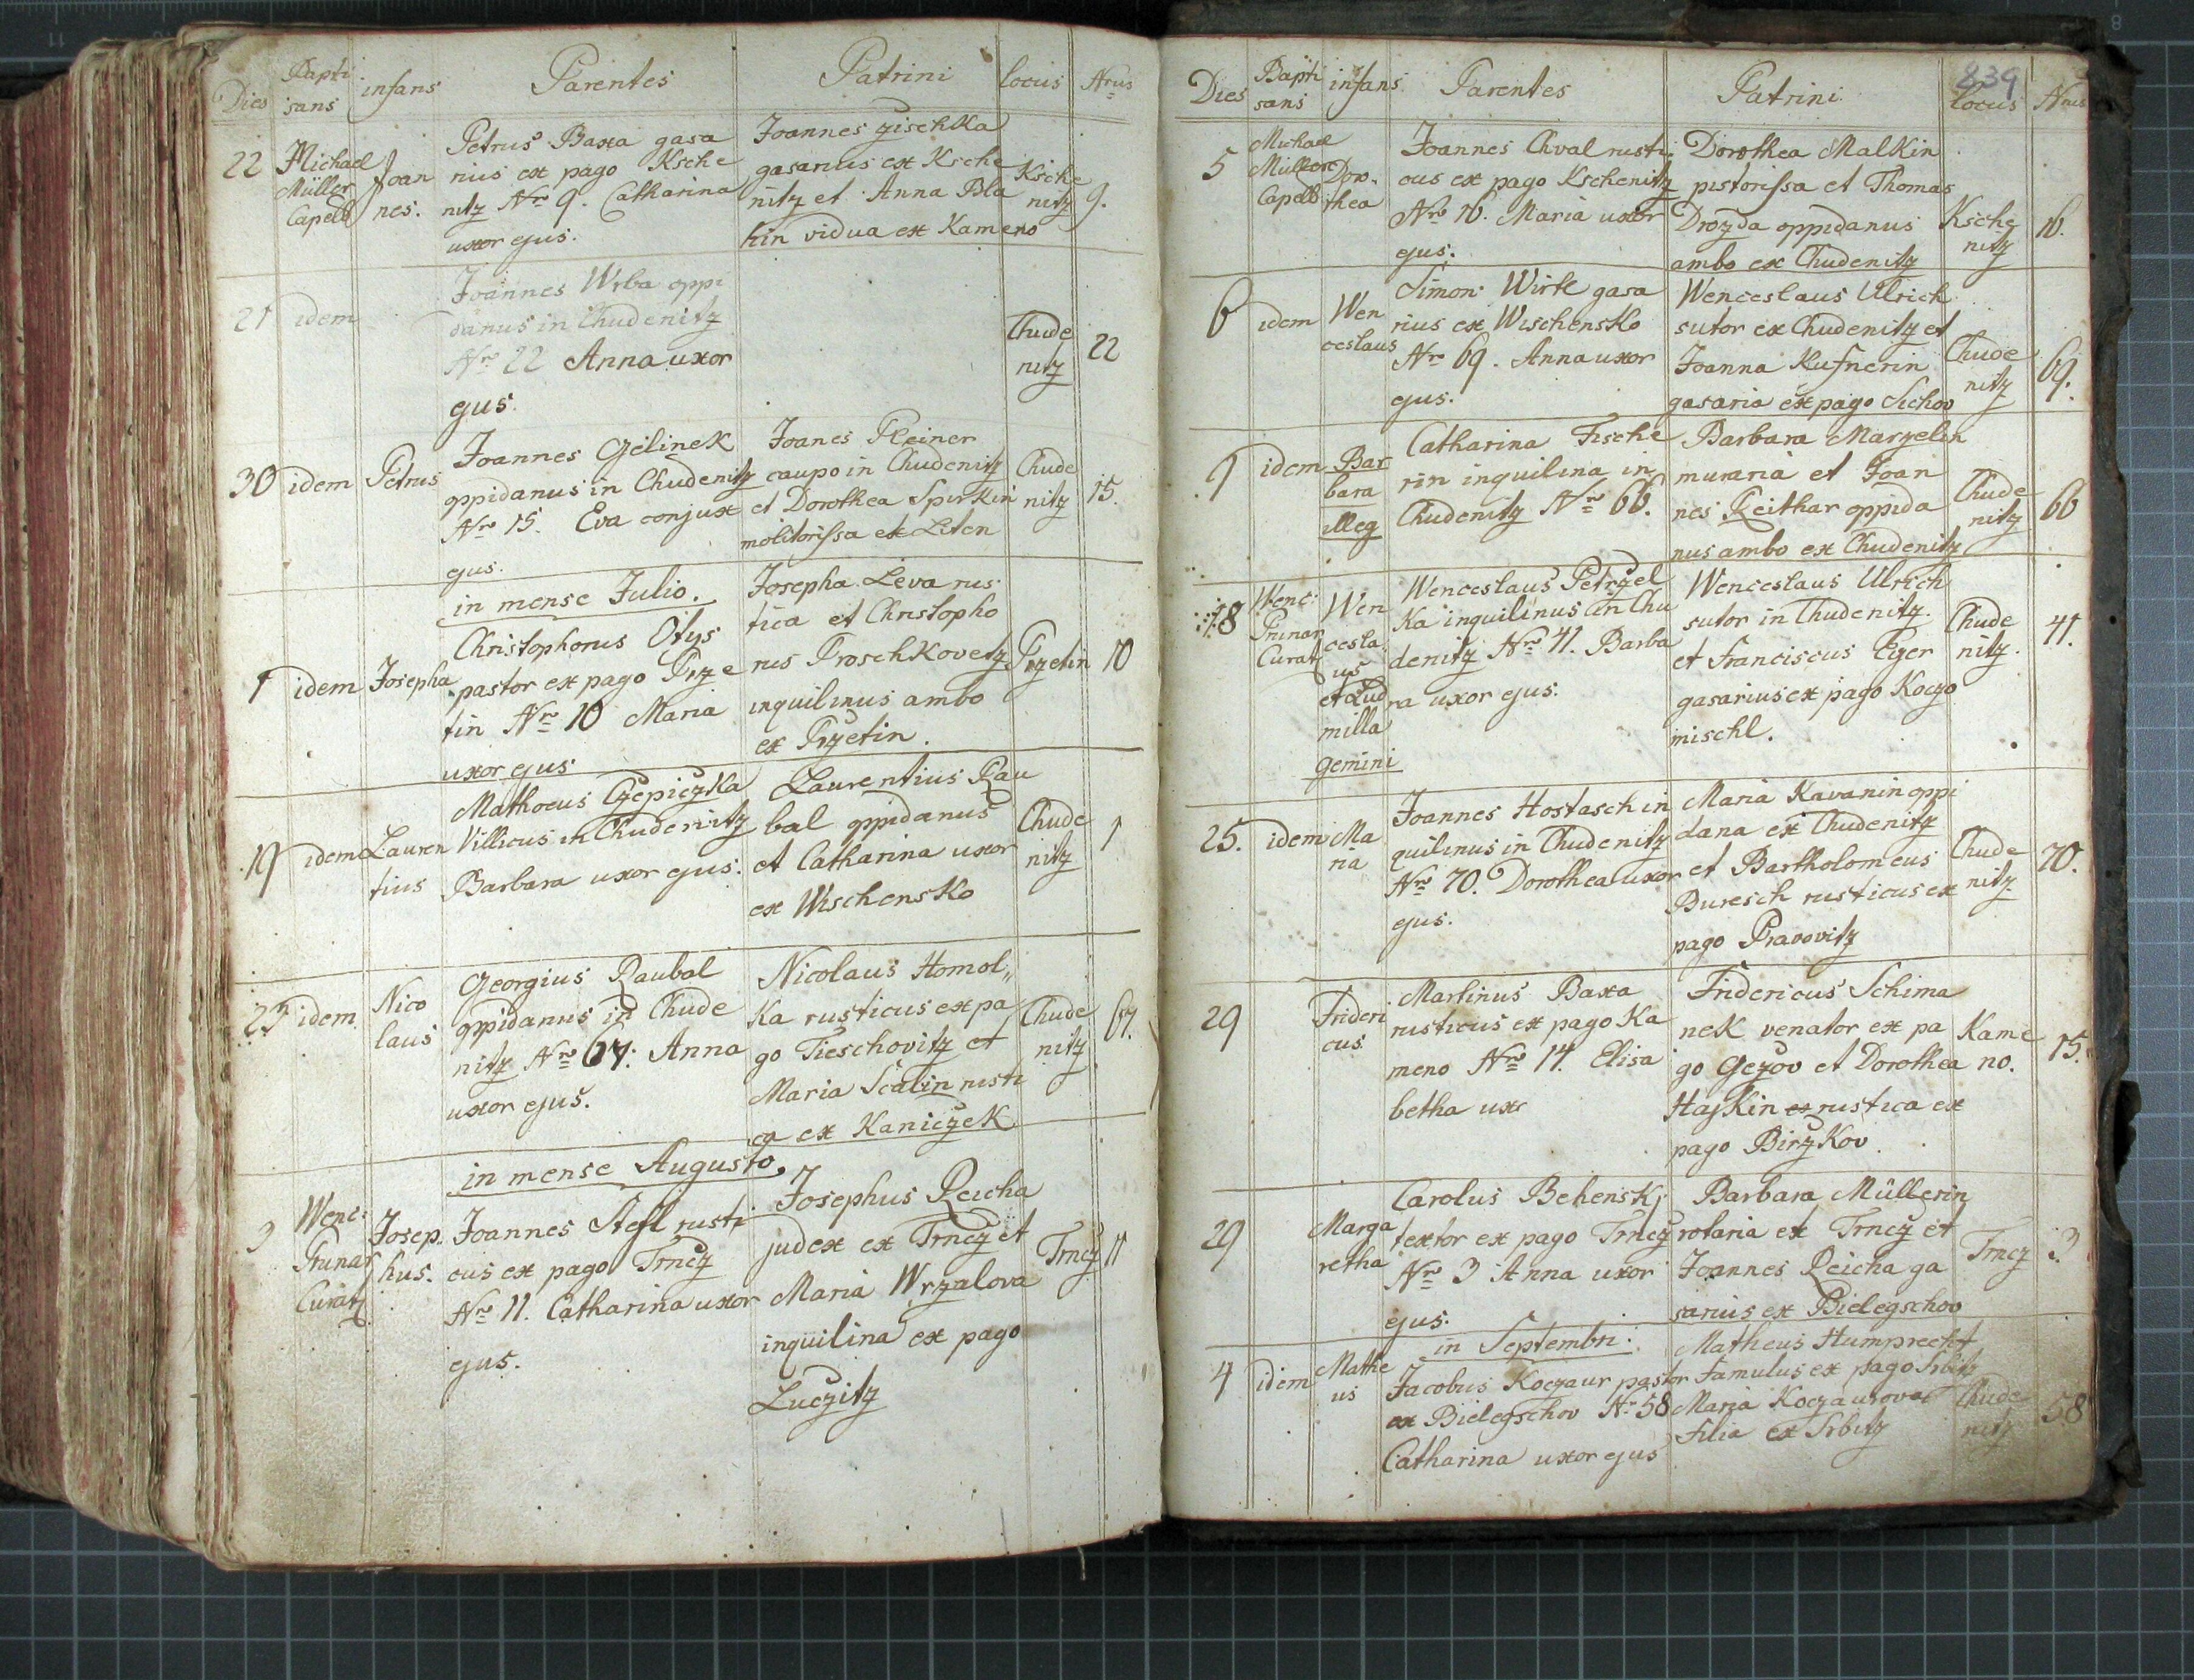 Dies Bapti sans infans Parentes Patrini locus Nrus
22 Michael Müller Capell Joan nes.
Petrus Baxa gasa
rius ex pago Ksche
nitz Nro 9. Catharina
uxor ejus.
Joannes zischka
gasarius ex Ksche
nitz et Anna Bla
hin vidua ex Kameno
Ksche nitz 9.
21 idem
Joannes Wrba oppi
danus in Chudenitz
Nro 22 Anna uxor
ejus.
Chude nitz 22
30 idem Petrus
Joannes Gelinek
oppidanus in Chudenitz
Nro 15. Eva conjux
ejus.
Joanes Pleiner
caupo in Chudenitz
et Dorothea Spirkin
molitorissa ex Liten
Chude nitz 15.
in mense Julio.
1 idem Josepha
Christophorus Otys
pastor ex pago Prze
tin Nro 10 Maria
uxor ejus
Josepha Leva rus
tica et Christopho
rus Proschkovetz
inquilinus ambo
ex Przetin.
Przetin 10
19 idem Lauren tius
Mathoeus Czepiczka
Villicus in Chudenitz
Barbara uxor ejus.
Laurentius Rau
bal oppidanus
et Catharina uxor
ex Wischensko
Chude nitz 1
23 idem Nico laus
Georgius Raubal
oppidanus in Chude
nitz Nro 67. Anna
uxor ejus.
Nicolaus Homol„
ka rusticus ex pa
go Tieschovitz et
Maria Scalin rusti
ca ex Kaniczek
Chude nitz 67.
in mense Augusto,
3 Wenc: Prunar Curatz Josep hus.
Joannes Stefl rusti
cus ex pago Trncz
Nro 11. Catharina uxor
ejus.
Josephus Reicha
judex ex Trncz et
Maria Wrzalova
inquilina ex pago
Luczitz
Trncz 11
839
Dies Bapti sans infans Parentes Patrini locus Nrus
5 Michael Müller Capell Doro thea
Joannes Chval rusti
cus ex pago Kschenitz
Nro 16. Maria uxor
ejus.
Dorothea Malkin
pistorissa et Thomas
Drozda oppidanus
ambo ex Chudenitz
Ksche nitz 16.
6 idem Wen ceslaus
Simon Wirtl gasa
rius ex Wischensko
Nro 69. Anna uxor
ejus.
Wenceslaus Ulrich
sutor ex Chudenitz et
Joanna Kufnerin
gasaria ex pago Sichov
Chude nitz 69.
9 idem Bar bara illeg
Catharina Fische
rin inquilina in
Chudenitz Nro 66.
Barbara Marzelin
muraria et Joan
nes Reithar oppida
nus ambo ex Chudenitz
Chude nitz 66
18 Wenc: Prunar Curatz Wen cesla us et Lud milla gemini
Wenceslaus Petrzel
ka inquilinus in Chu
denitz Nro 41. Barba
ra uxor ejus.
Wenceslaus Ulrich
sutor in Chudenitz
et Franciscus Eger
gasarius ex pago Koczo
mischl.
Chude nitz. 41.
25. idem Ma ria
Joannes Hostasch in
quilinus in Chudenitz
Nro 70. Dorothea uxor
ejus.
Maria Kavanin oppi
dana ex Chudenitz
et Bartholomeus
Buresch rusticus ex
pago Pravovitz
Chude nitz 70.
29 Frideri cus
Martinus Baxa
rusticus ex pago Ka
meno Nro 14. Elisa
betha uxr
Fridericus Schima
nek venator ex pa
go Gezov et Dorothea
Hajkin ex rustica ex
pago Birzkov.
Kame no. 15.
29 Marga retha
Carolus Behensky
textor ex pago Trncz
Nro 3 Anna uxor
ejus.
Barbara Müllerin
rotaria ex Trncz et
Joannes Reicha ga
sarius ex Bielegschov
Trncz 3
in Septembri.
4 idem Mathe us
Jacobus Koczaur pastor
ex Bielegschov No 58
Catharina uxor ejus
Matheus Humprecht
famulus ex pago Srbitz
Maria Koczaurova
filia ex Srbitz
Chude nitz 58